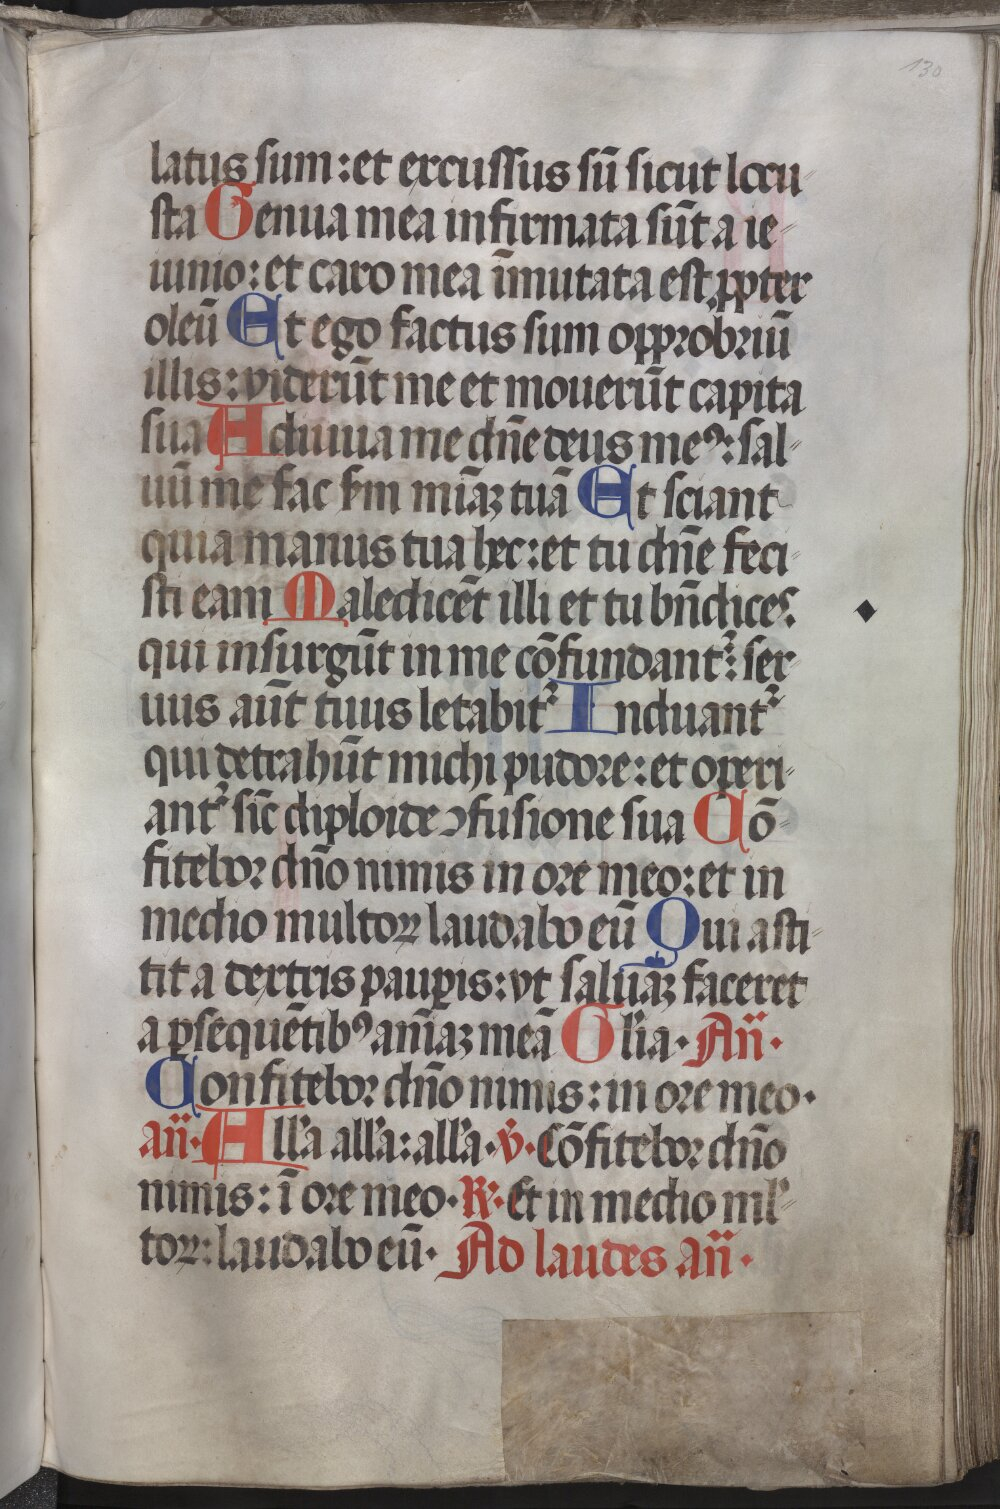 130
latus sum : et excussus sū sicut locu
sta Genua mea infirmata sūt a ie
iunio : et caro mea īmutata est ꝓpter
oleū Et ego factus sum opprobriū
illis : viderūt me et mouerūt capita
sua Adiuua me dn̄e deus meꝰ : sal
uū me fac ẜm mīaꝫ tuā Et sciant
quia manus tua hec : et tu dn̄e feci
sti eam Maledicēt illi et tu bn̄dices :
qui insurgūt in me cōfundant᷑ : ser
uus aūt tuus letabit᷑ Induant᷑
qui detrahūt michi pudore : et operi
ant᷑ sic̄ diploide ꝯfusione sua Cō
fitebor dn̄o nimis in ore meo : et in
medio multoꝝ laudabo eū Qui asti
tit a dextris pauꝑis : vt saluaꝫ faceret
a ꝑsequētibꝰ anīaꝫ meā Gl'ia · An̄ ·
Confitebor dn̄o nimis : in ore meo ·
an̄ · All'a all'a : all'a · v̇ · Cōfitebor dn̄o
nimis : ī ore meo · R' · Et in medio ml'
toꝝ : laudabo eū · Ad laudes an̄ ·